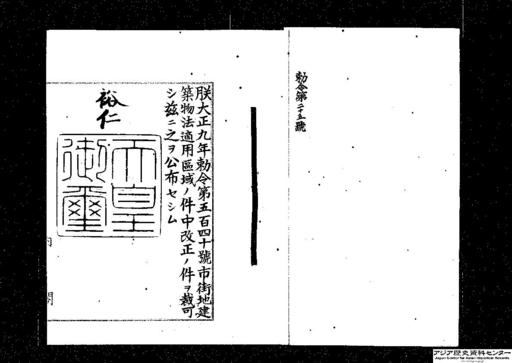 勅令第二十五號
朕大正九年勅令第五百四十號市街地建
築物法適用區域ノ件中改正ノ件ヲ裁可
シ茲ニ之ヲ公布セシム
裕仁
天皇
御璽
内
閣
アジア歴史資料センター
Japan Center for Asian Historical Records